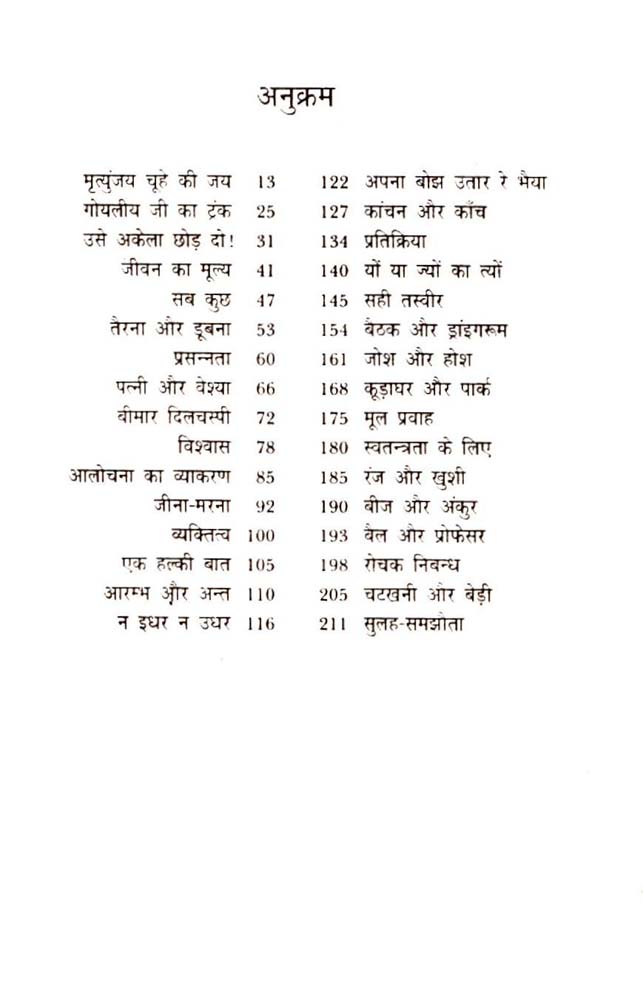 अनुक्रम
मृत्युंजय चूहे की जय 13
गोयलीय जी का ट्रंक 25
उसे अकेला छोड़ दो! 31
जीवन का मूल्य 41
सब कुछ 47
तैरना और डूबना 53
प्रसन्नता 60
पत्नी और वेश्या 66
बीमार दिलचस्पी 72
विश्वास 78
आलोचना का व्याकरण 85
जीना-मरना 92
व्यक्तित्व 100
एक हल्की बात 105
आरम्भ और अन्त 110
न इधर न उधर 116
122 अपना बोझ उतार रे भैया
127 कांचन और काँच
134 प्रतिक्रिया
140 यों या ज्यों का त्यों
145 सही तस्वीर
154 बैठक और ड्रांइगरूम
161 जोश और होश
168 कूड़ाघर और पार्क
175 मूल प्रवाह
180 स्वतन्त्रता के लिए
185 रंज और खुशी
190 बीज और अंकुर
193 बैल और प्रोफेसर
198 रोचक निबन्ध
205 चटखनी और बेड़ी
211 सुलह-समझौता